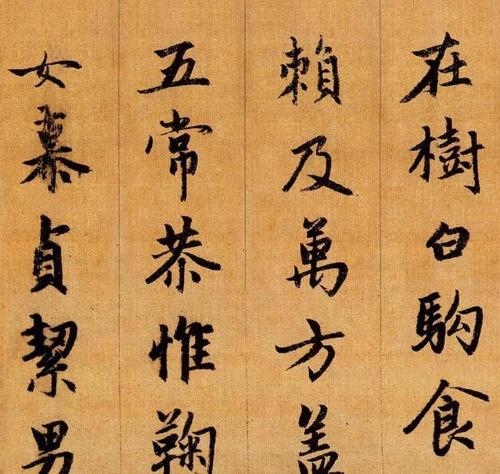 在樹白駒食
賴及萬方蓋
五常恭惟鞠
女慕貞絜男